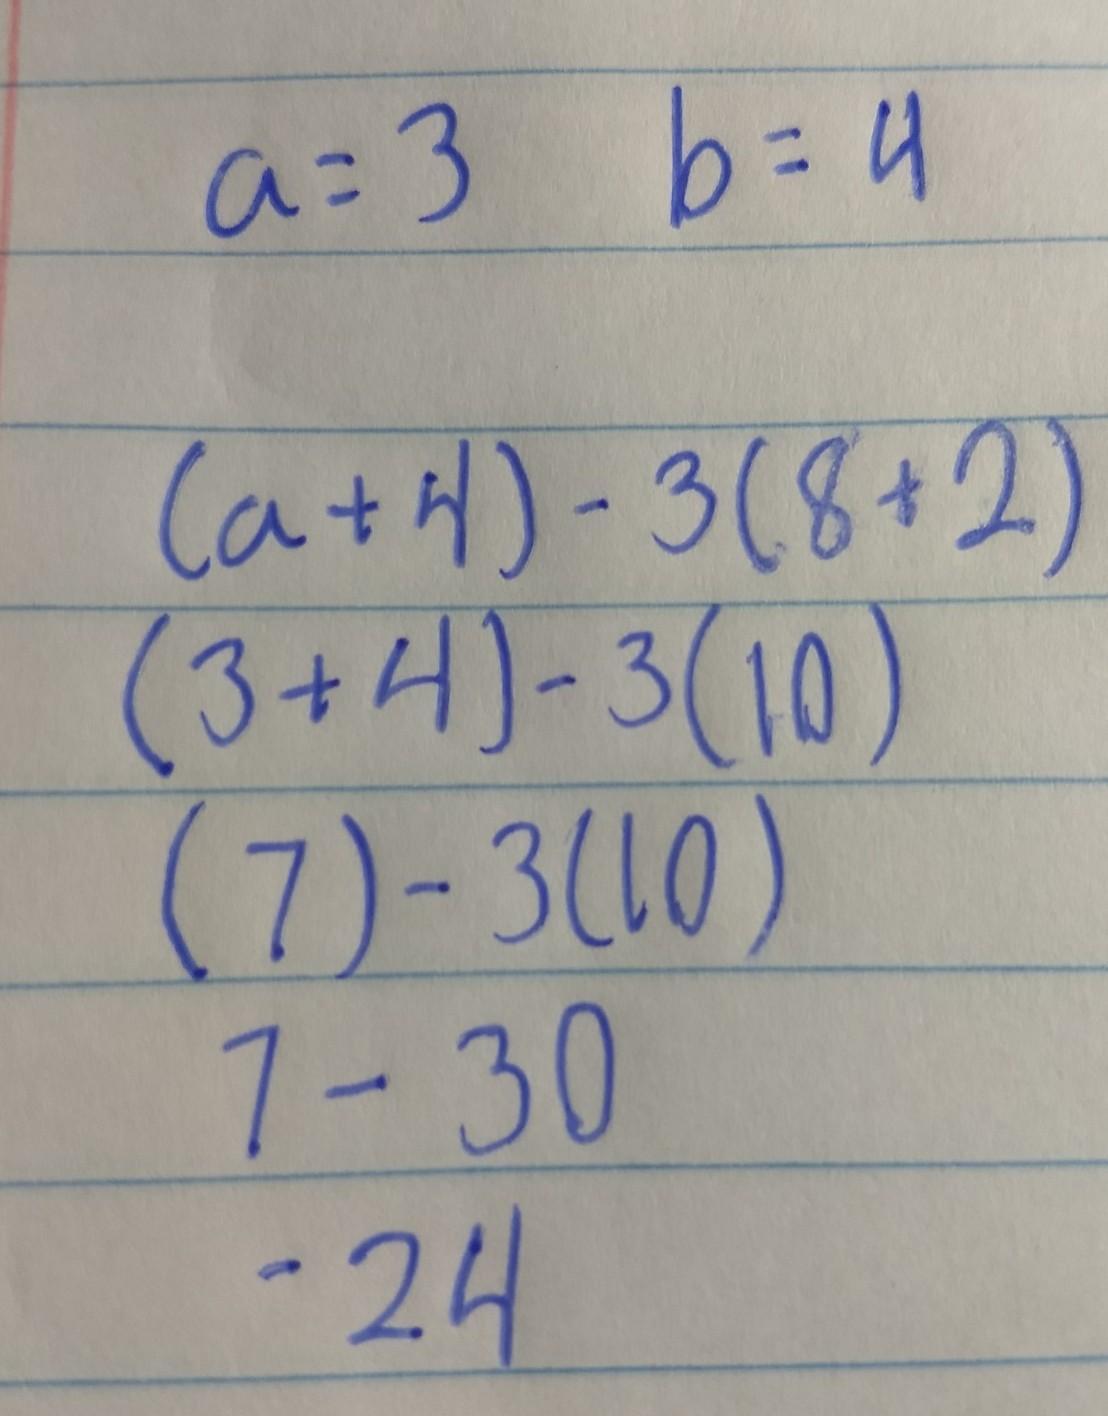 a = 3 b = 4
(a + 4) - 3(8 + 2)
(3 + 4) - 3(10)
(7) - 3(10)
7 - 30
-24